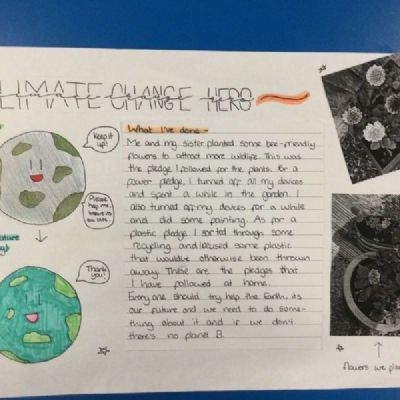 CLIMATE CHANGE HERO
Keep it up!
Please help me,
What I've done -
Me and my sister planted some bee-friendly
flowers to attract more wildlife. This was
the pledge I followed for the plants. For a
power pledge, I turned off all my devices
and spent a while in the garden. I
also turned off my devices for a while
and did some painting. As for a
plastic pledge I sorted through some
recycling and reused some plastic
that would've otherwise been thrown
away. These are the pledges that
I have followed at home.
Everyone should try help the Earth, its
our future and we need to do some-
thing about it and if we don't
there's no planet B.
Thank you!
flowers we